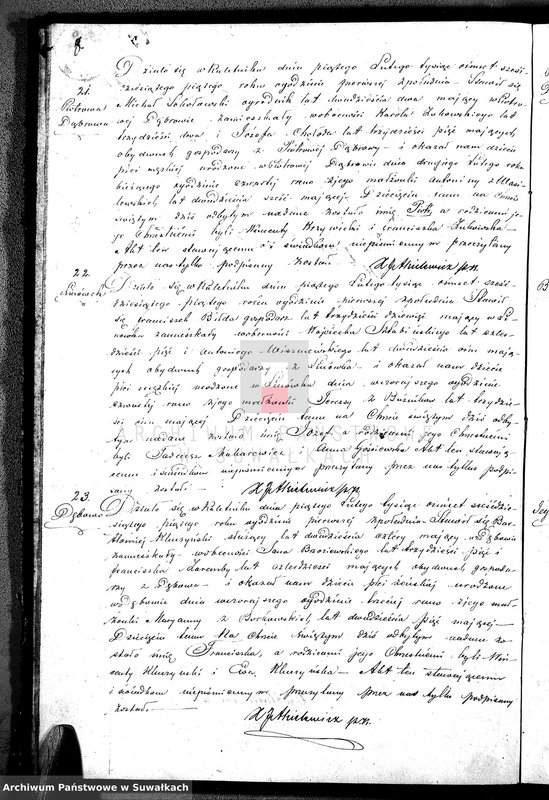 8
21.
Piotrowa
Dąbrowa
Działo się w Kaletniku dnia piątego Lutego tysiąc ośmset sześć
dziesiątego piątego roku o godzinie pierwszej z południa. Stawił się
Michał Sokołowski ogrodnik lat dwadzieścia dwa mający w Piotro
wej Dąbrowie zamieszkały w obecności Karola Żukowskiego lat
trzydzieści dwa i Józefa lat trzydzieści pięć mających
obydwóch gospodarzy z Piotrowej Dąbrowy – i okazał nam dziecie
płci męzkiej urodzone w Piotrowej Dąbrowie dnia drugiego Lutego roku
bieżącego o godzinie czwartej rano z jego małżonki Antoniny z Wasi
lewskich lat dwadzieścia sześć mającej – Dziecięciu temu na Chrzcie
świętym dziś odbytym nadane zostało imię Piotr, a rodzicami je
go Chrzestnemi byli Wincenty Krzywicki i Franciszka Żukowska –
Akt ten stawającemu i świadkom niepiśmiennym przeczytany
przez nas tylko podpisany został
22.
Sinówek
Działo się w Kaletniku dnia piątego Lutego tysiąc ośmset sześć
dziesiątego piątego roku o godzinie pierwszej z południa Stawił
się Franciszek gospodarz lat trzydzieści dziewięć mający w Si
nówku zamieszkały w obecności Wojciecha lat czter
dzieści pięć i Antoniego Wiszniewskiego lat dwadzieścia ośm mają
cych obydwóch gospodarzy z Sinówka – i okazał nam dziecie
płci męzkiej urodzone w Sinówku dnia wczorajszego o godzinie
czwartej rano z jego małżonki Teresy z lat trzydzie
ści ośm mającej Dziecięciu temu na Chrzcie świętym dziś odby
tym nadane zostało imię Józef a rodzicami jego Chrzestnemi
byli Tadeusz Makarewicz i Anna Akt ten stawają
cemu i świadkom niepiśmiennym przeczytany przez nas tylko podpi
sany został
23.
Dębowo
Działo się w Kaletniku dnia piątego Lutego tysiąc ośmset sześćdzie
siątego piątego roku o godzinie pierwszej z południa Stawił się Bar
tłomiej Kluczyński służący lat dwadzieścia cztery mający w Dębowie
zamieszkały – w obecności Jana lat trzydzieści pięć i
Franciszka Zaremby lat czterdzieści mających obydwóch gospoda
rzy z Dębowa – i okazał nam dziecie płci żeńskiej urodzone
w Dębowie dnia wczorajszego o godzinie trzeciej rano z jego mał
żonki Maryanny z Borkowskich lat dwadzieścia pięć mającej –
Dziecięciu temu Na Chrzcie świętym dziś odbytym nadane zo
stało imię Franciszka, a rodzicami jego Chrzestnemi byli Win
centy Kluczyński i Ewa Kluczyńska – Akt ten stawającemu
i świadkom niepiśmiennym przeczytany przez nas tylko podpisany
został. –
ARCHIWUM PAŃSTWOWE
W SUWAŁKACH
Archiwum Państwowe w Suwałkach